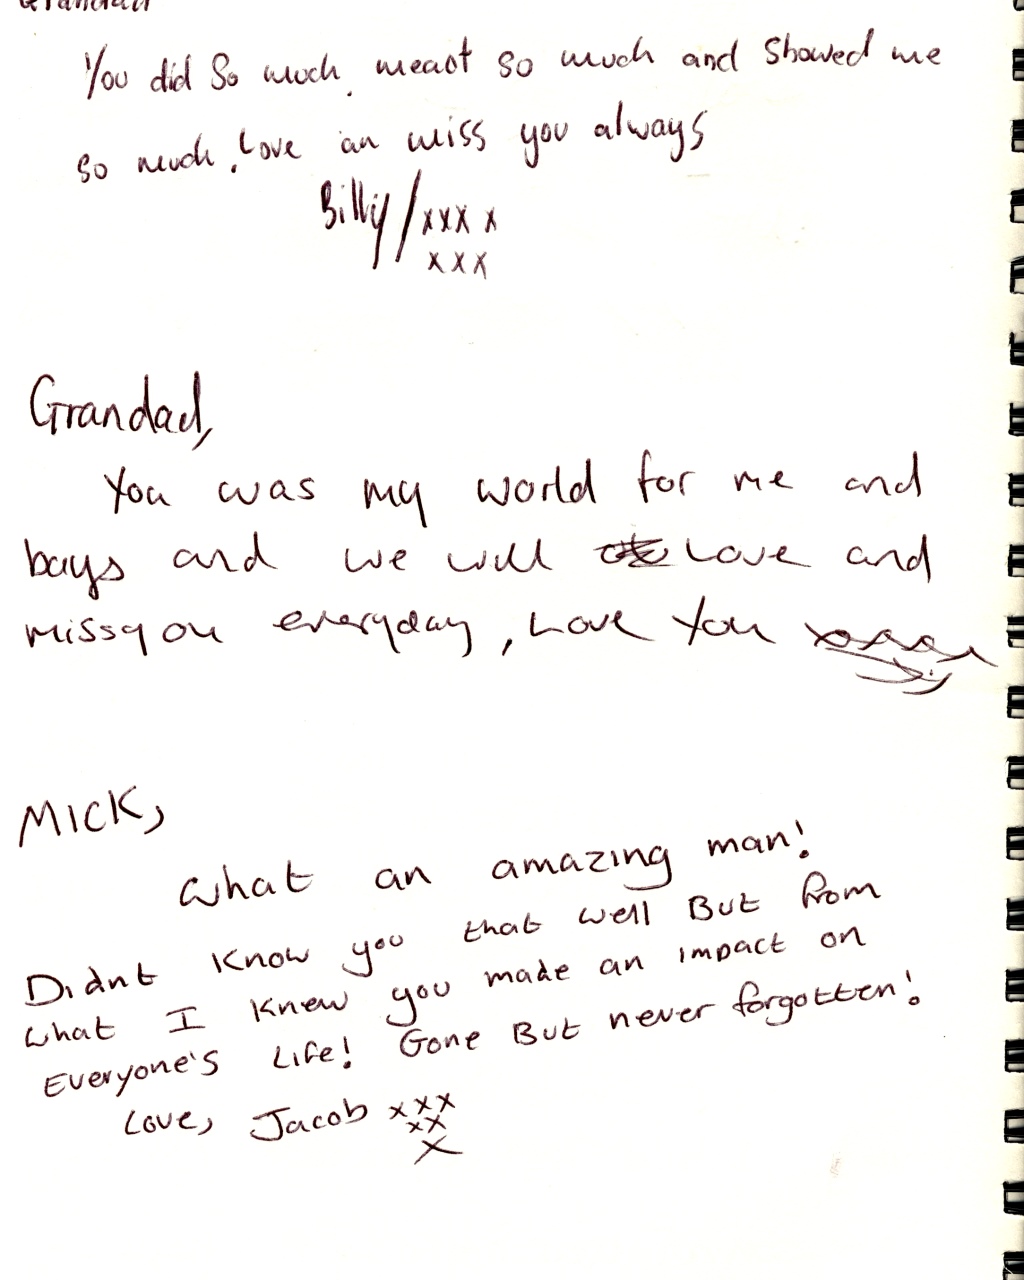 Grandad
You did So much, meant so much and showed me
so much, Love an miss you always
Billy / xxx x
xxx
Grandad,
You was my world for me and
boys and we will Love and
miss you everyday, Love You
MICK,
What an amazing man!
Didnt Know you that well But from
what I knew you made an impact on
Everyone's Life! Gone But never forgotten!
Love, Jacob xxx
xx
x